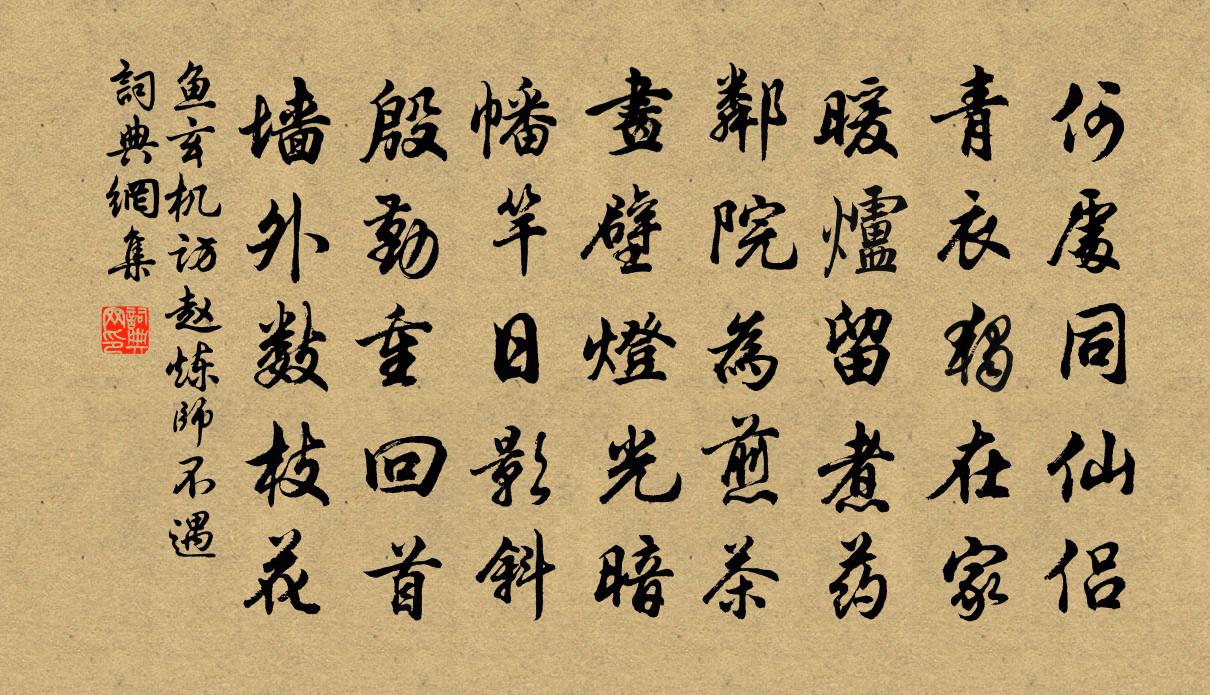 何處同仙侶
青衣獨在家
暖爐留煮药
鄰院為煎茶
畫壁燈光暗
幡竿日影斜
殷勤重回首
墙外数枝花
鱼玄机访赵炼師不遇
詞典網集
詞典网印